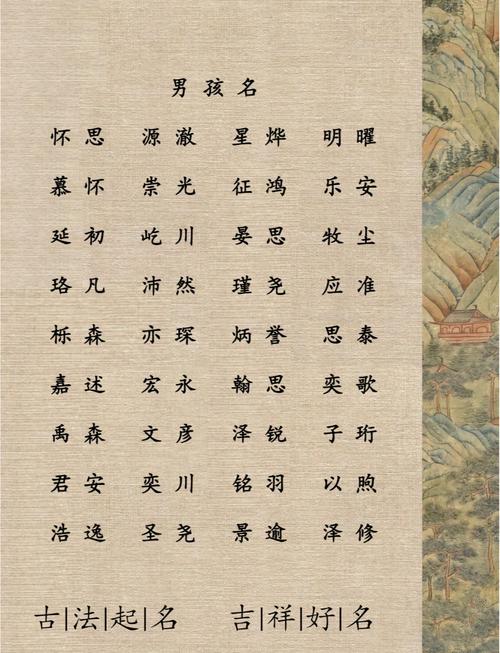 男孩名
怀思 源澈 星烨 明曜
慕怀 崇光 征鸿 乐安
延初 屹川 晏思 牧尘
珞凡 沛然 瑾尧 应准
栎森 亦琛 炳誉 思泰
嘉述 宏永 翰思 奕歌
禹森 文彦 泽锐 子珩
君安 奕川 铭羽 以煦
浩逸 圣尧 景逾 泽修
古|法|起|名 吉|祥|好|名